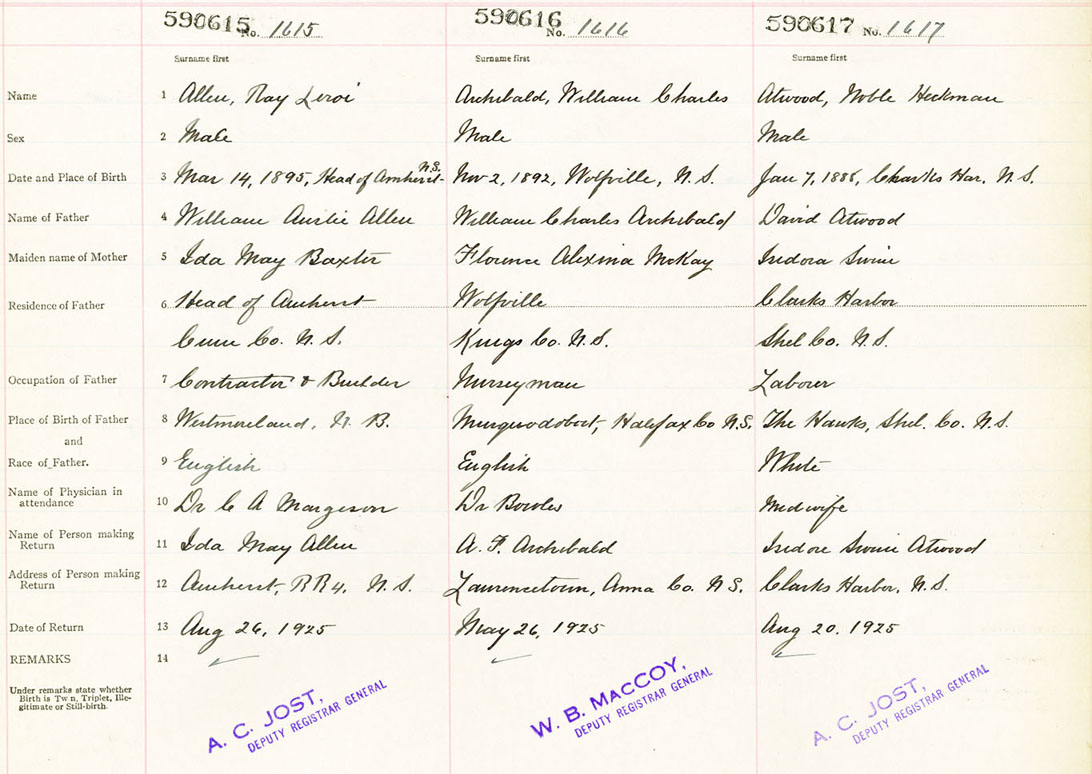 590615 No. 1615
590616 No. 1616
590617 No. 1617
Surname first
Surname first
Surname first
Name 1 Allen, Ray Leroi
Archibald, William Charles
Atwood, Noble Heckman
Sex 2 Male
Male
Male
Date and Place of Birth 3 Mar 14, 1895, Head of Amherst N.S.
Nov 2, 1892, Wolfville, N.S.
Jan 7, 1888, Clarks Har. N.S.
Name of Father 4 William Austie Allen
William Charles Archibald
David Atwood
Maiden name of Mother 5 Ida May Baxter
Florence Alexina McKay
Isidora Swim
Residence of Father 6 Head of Amherst
Wolfville
Clarks Harbor
Cum Co. N.S.
Kings Co. N.S.
Shel Co. N.S.
Occupation of Father 7 Contractor & Builder
Nurseyman
Labourer
Place of Birth of Father 8 Westmoreland, N.B.
Musquodoboit, Halifax Co N.S.
The Hawks, Shel. Co. N.S.
and
Race of Father. 9 English
English
White
Name of Physician in
attendance 10 Dr C A Margeson
Dr Bowles
Midwife
Name of Person making
Return 11 Ida May Allen
A. F. Archibald
Isidore Swim Atwood
Address of Person making
Return 12 Amherst, RR4, N.S.
Lawrencetown, Anna Co. N.S.
Clarks Harbor, N.S.
Date of Return 13 Aug 26, 1925
May 26, 1925
Aug 20, 1925
REMARKS 14
Under remarks state whether
Birth is Twin, Triplet, Ille-
gitimate or Still-birth.
A. C. JOST,
DEPUTY REGISTRAR GENERAL
W. B. MacCOY,
DEPUTY REGISTRAR GENERAL
A. C. JOST,
DEPUTY REGISTRAR GENERAL